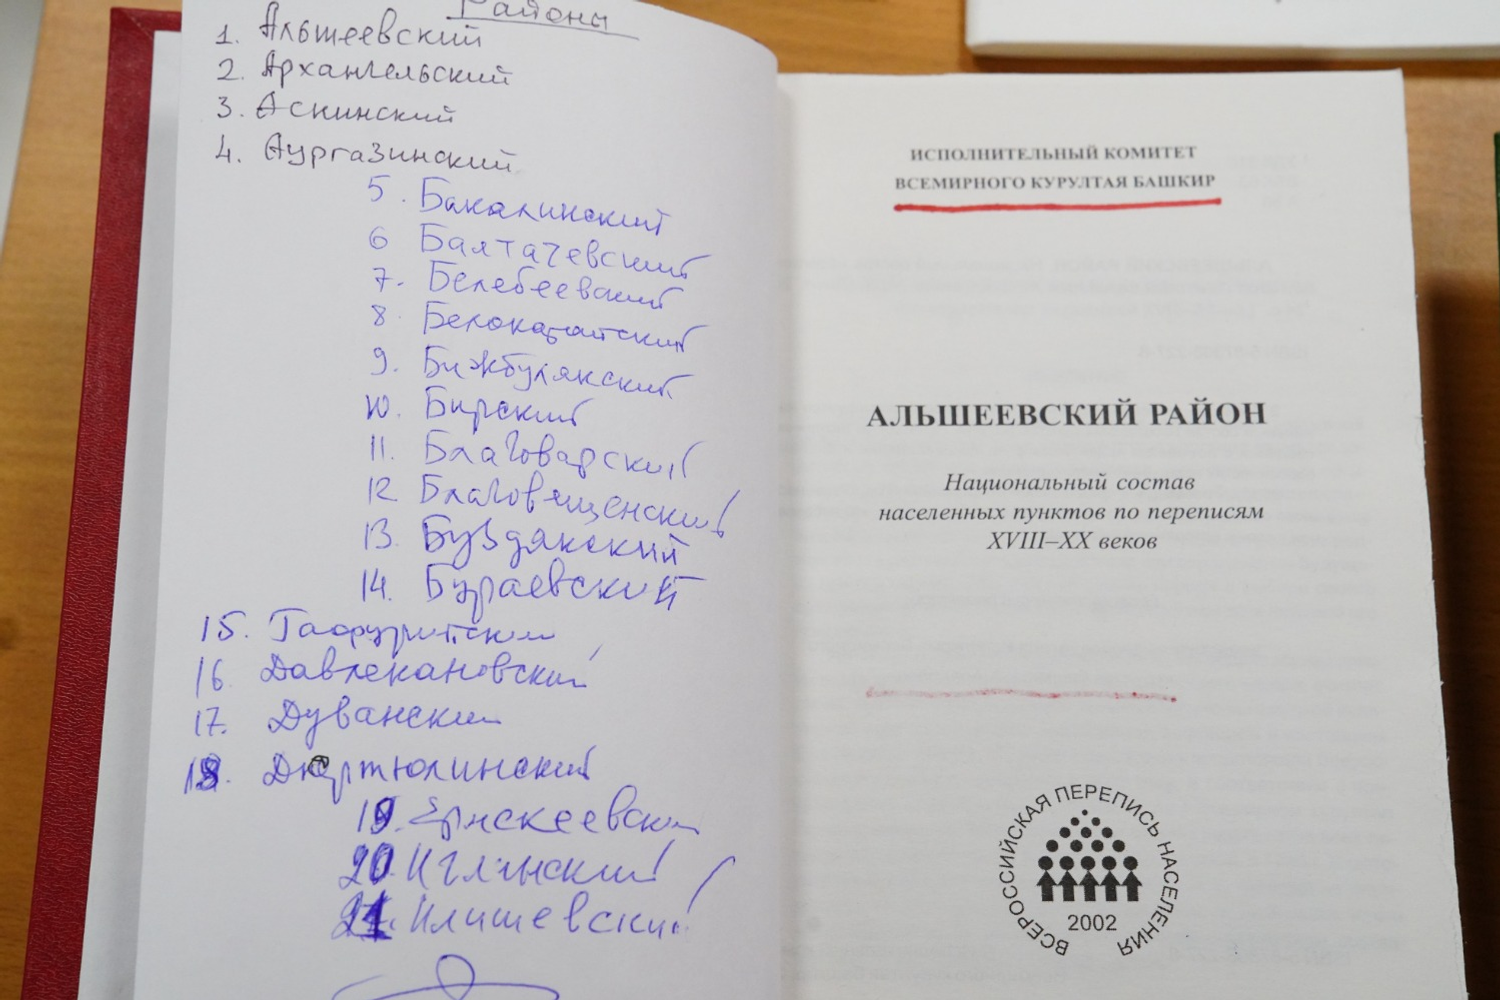 Районы
1. Альшеевский
2. Архангельский
3. Аскинский
4. Аургазинский
5. Бакалинский
6 Балтачевский
7. Белебеевский
8 Белокатайский
9. Бижбулякский
10. Бирский
11. Благоварский
12 Благовещенский
13. Буздякский
14. Бураевский
15. Гафурийский
16. Давлекановский
17. Дуванский
18. Дюртюлинский
19. Ермекеевский
20 Иглинский
21. Илишевский
ИСПОЛНИТЕЛЬНЫЙ КОМИТЕТ
ВСЕМИРНОГО КУРУЛТАЯ БАШКИР
АЛЬШЕЕВСКИЙ РАЙОН
Национальный состав
населенных пунктов по переписям
XVIII–XX веков
ВСЕРОССИЙСКАЯ ПЕРЕПИСЬ НАСЕЛЕНИЯ
2002